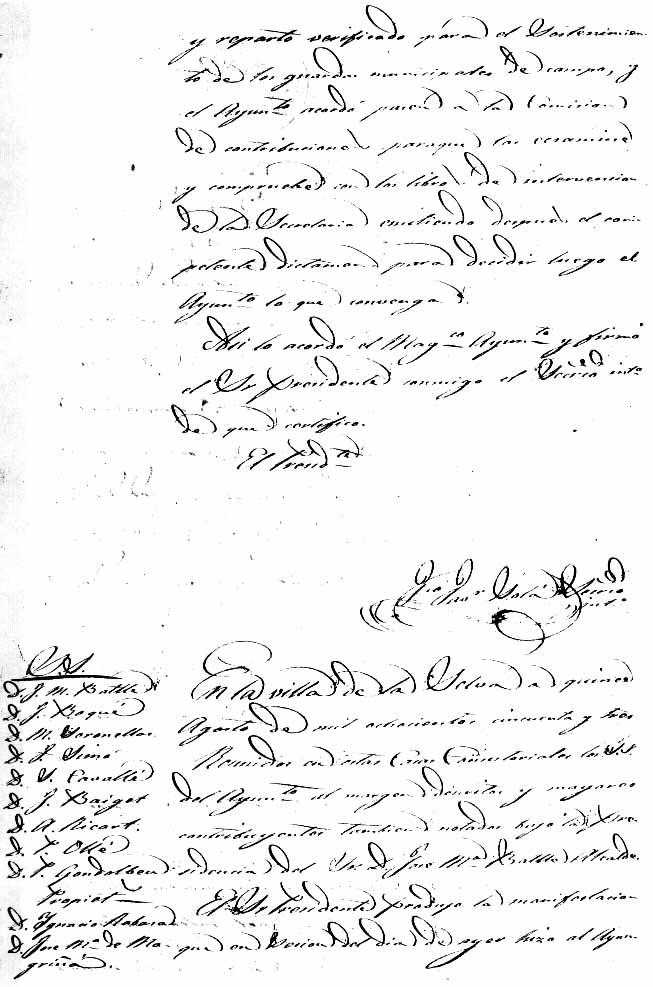 y reparto verificado para el Sostenimien-
to de los guardas municipales de campo, y
el Ayunto acordó pasen a la Comision
de contribuciones para que las ecsamine
y compruebe con los libros de intervencion
de la Secretaria emitiendo despues el com-
petente dictamen para decidir luego el
Ayunto lo que convenga.
Asi lo acordó el Magco Ayunto y firmó
el Sr Presidente conmigo el Secrio into
de que certifico.
El Presidte
Juan Solá Secrio
into
S.S.
D. J. M. Batlle
D. J. Boqué
D. M. Voronellas
D. J. Simó
D. S. Cavallé
D. J. Baiget
D. A. Ricart
D. P. Ollé
D. T.
Propiets
D. Ignacio Rabasa
D. Jose Ma de Ma-
griñá.
En la villa de la Selva a quince
Agosto de mil ochocientos cincuenta y tres
Reunidos en estas Casas Consistoriales los S.S.
del Ayunto al margen descritos y mayores
contribuyentes tambien notados bajo la Pre-
sidencia del Sor D. Jose Ma Batlle Alcalde.
El Sr Presidente produjo la manifestacion
que en Sesion del dia de ayer hizo al Ayun-